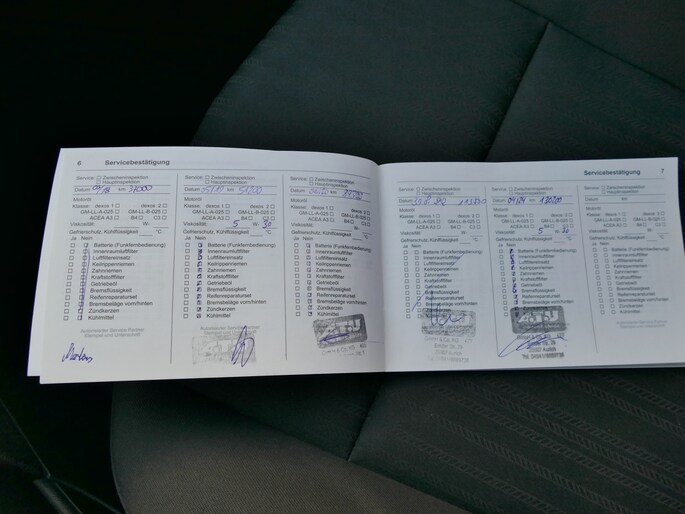 6 Servicebestätigung
Service: Zwischeninspektion
Hauptinspektion
Datum km 31000
Motoröl
Klasse: dexos 1 dexos 2
GM-LL-A-025 GM-LL-B-025
ACEA A3 B4 C3
Viskosität: W-
Gefrierschutz, Kühlflüssigkeit: °C
Ja Nein
Batterie (Funkfernbedienung)
Innenraumluftfilter
Luftfiltereinsatz
Keilrippenriemen
Zahnriemen
Kraftstofffilter
Getriebeöl
Bremsflüssigkeit
Reifenreparaturset
Bremsbeläge vorn/hinten
Zündkerzen
Kühlmittel
Autorisierter Service Partner
Stempel und Unterschrift
Service: Zwischeninspektion
Hauptinspektion
Datum km 51200
Motoröl
Klasse: dexos 1 dexos 2
GM-LL-A-025 GM-LL-B-025
ACEA A3 B4 C3
Viskosität: 5 W- 30
Gefrierschutz, Kühlflüssigkeit: °C
Ja Nein
Batterie (Funkfernbedienung)
Innenraumluftfilter
Luftfiltereinsatz
Keilrippenriemen
Zahnriemen
Kraftstofffilter
Getriebeöl
Bremsflüssigkeit
Reifenreparaturset
Bremsbeläge vorn/hinten
Zündkerzen
Kühlmittel
Autorisierter Service Partner
Stempel und Unterschrift
Service: Zwischeninspektion
Hauptinspektion
Datum
Motoröl
Klasse: dexos 1 dexos 2
GM-LL-A-025 GM-LL-B-025
ACEA A3 B4 C3
Viskosität: W-
Gefrierschutz, Kühlflüssigkeit: °C
Ja Nein
Batterie (Funkfernbedienung)
Innenraumluftfilter
Luftfiltereinsatz
Keilrippenriemen
Zahnriemen
Kraftstofffilter
Getriebeöl
Bremsflüssigkeit
Reifenreparaturset
Bremsbeläge vorn/hinten
Zündkerzen
Kühlmittel
Servicebestätigung 7
Service: Zwischeninspektion
Hauptinspektion
Datum
Motoröl
Klasse: dexos 1 dexos 2
GM-LL-A-025 GM-LL-B-025
ACEA A3 B4 C3
Viskosität: W-
Gefrierschutz, Kühlflüssigkeit: °C
Ja Nein
Batterie (Funkfernbedienung)
Innenraumluftfilter
Luftfiltereinsatz
Keilrippenriemen
Zahnriemen
Kraftstofffilter
Getriebeöl
Bremsflüssigkeit
Reifenreparaturset
Bremsbeläge vorn/hinten
Zündkerzen
Service: Zwischeninspektion
Hauptinspektion
Datum 04/24 km
Motoröl
Klasse: dexos 1 dexos 2
GM-LL-A-025 GM-LL-B-025
ACEA A3 B4 C3
Viskosität: 5 W- 30
Gefrierschutz, Kühlflüssigkeit: °C
Ja Nein
Batterie (Funkfernbedienung)
Innenraumluftfilter
Luftfiltereinsatz
Keilrippenriemen
Zahnriemen
Kraftstofffilter
Getriebeöl
Bremsflüssigkeit
Reifenreparaturset
Bremsbeläge vorn/hinten
Zündkerzen
Kühlmittel
Service: Zwischeninspektion
Hauptinspektion
Datum km
Motoröl
Klasse: dexos 1 dexos 2
GM-LL-A-025 GM-LL-B-025
ACEA A3 B4 C3
Viskosität: W-
Gefrierschutz, Kühlflüssigkeit: °C
Ja Nein
Batterie (Funkfernbedienung)
Innenraumluftfilter
Luftfiltereinsatz
Keilrippenriemen
Zahnriemen
Kraftstofffilter
Getriebeöl
Bremsflüssigkeit
Reifenreparaturset
Bremsbeläge vorn/hinten
Zündkerzen
Kühlmittel
Autorisierter Service Partner
Stempel und Unterschrift